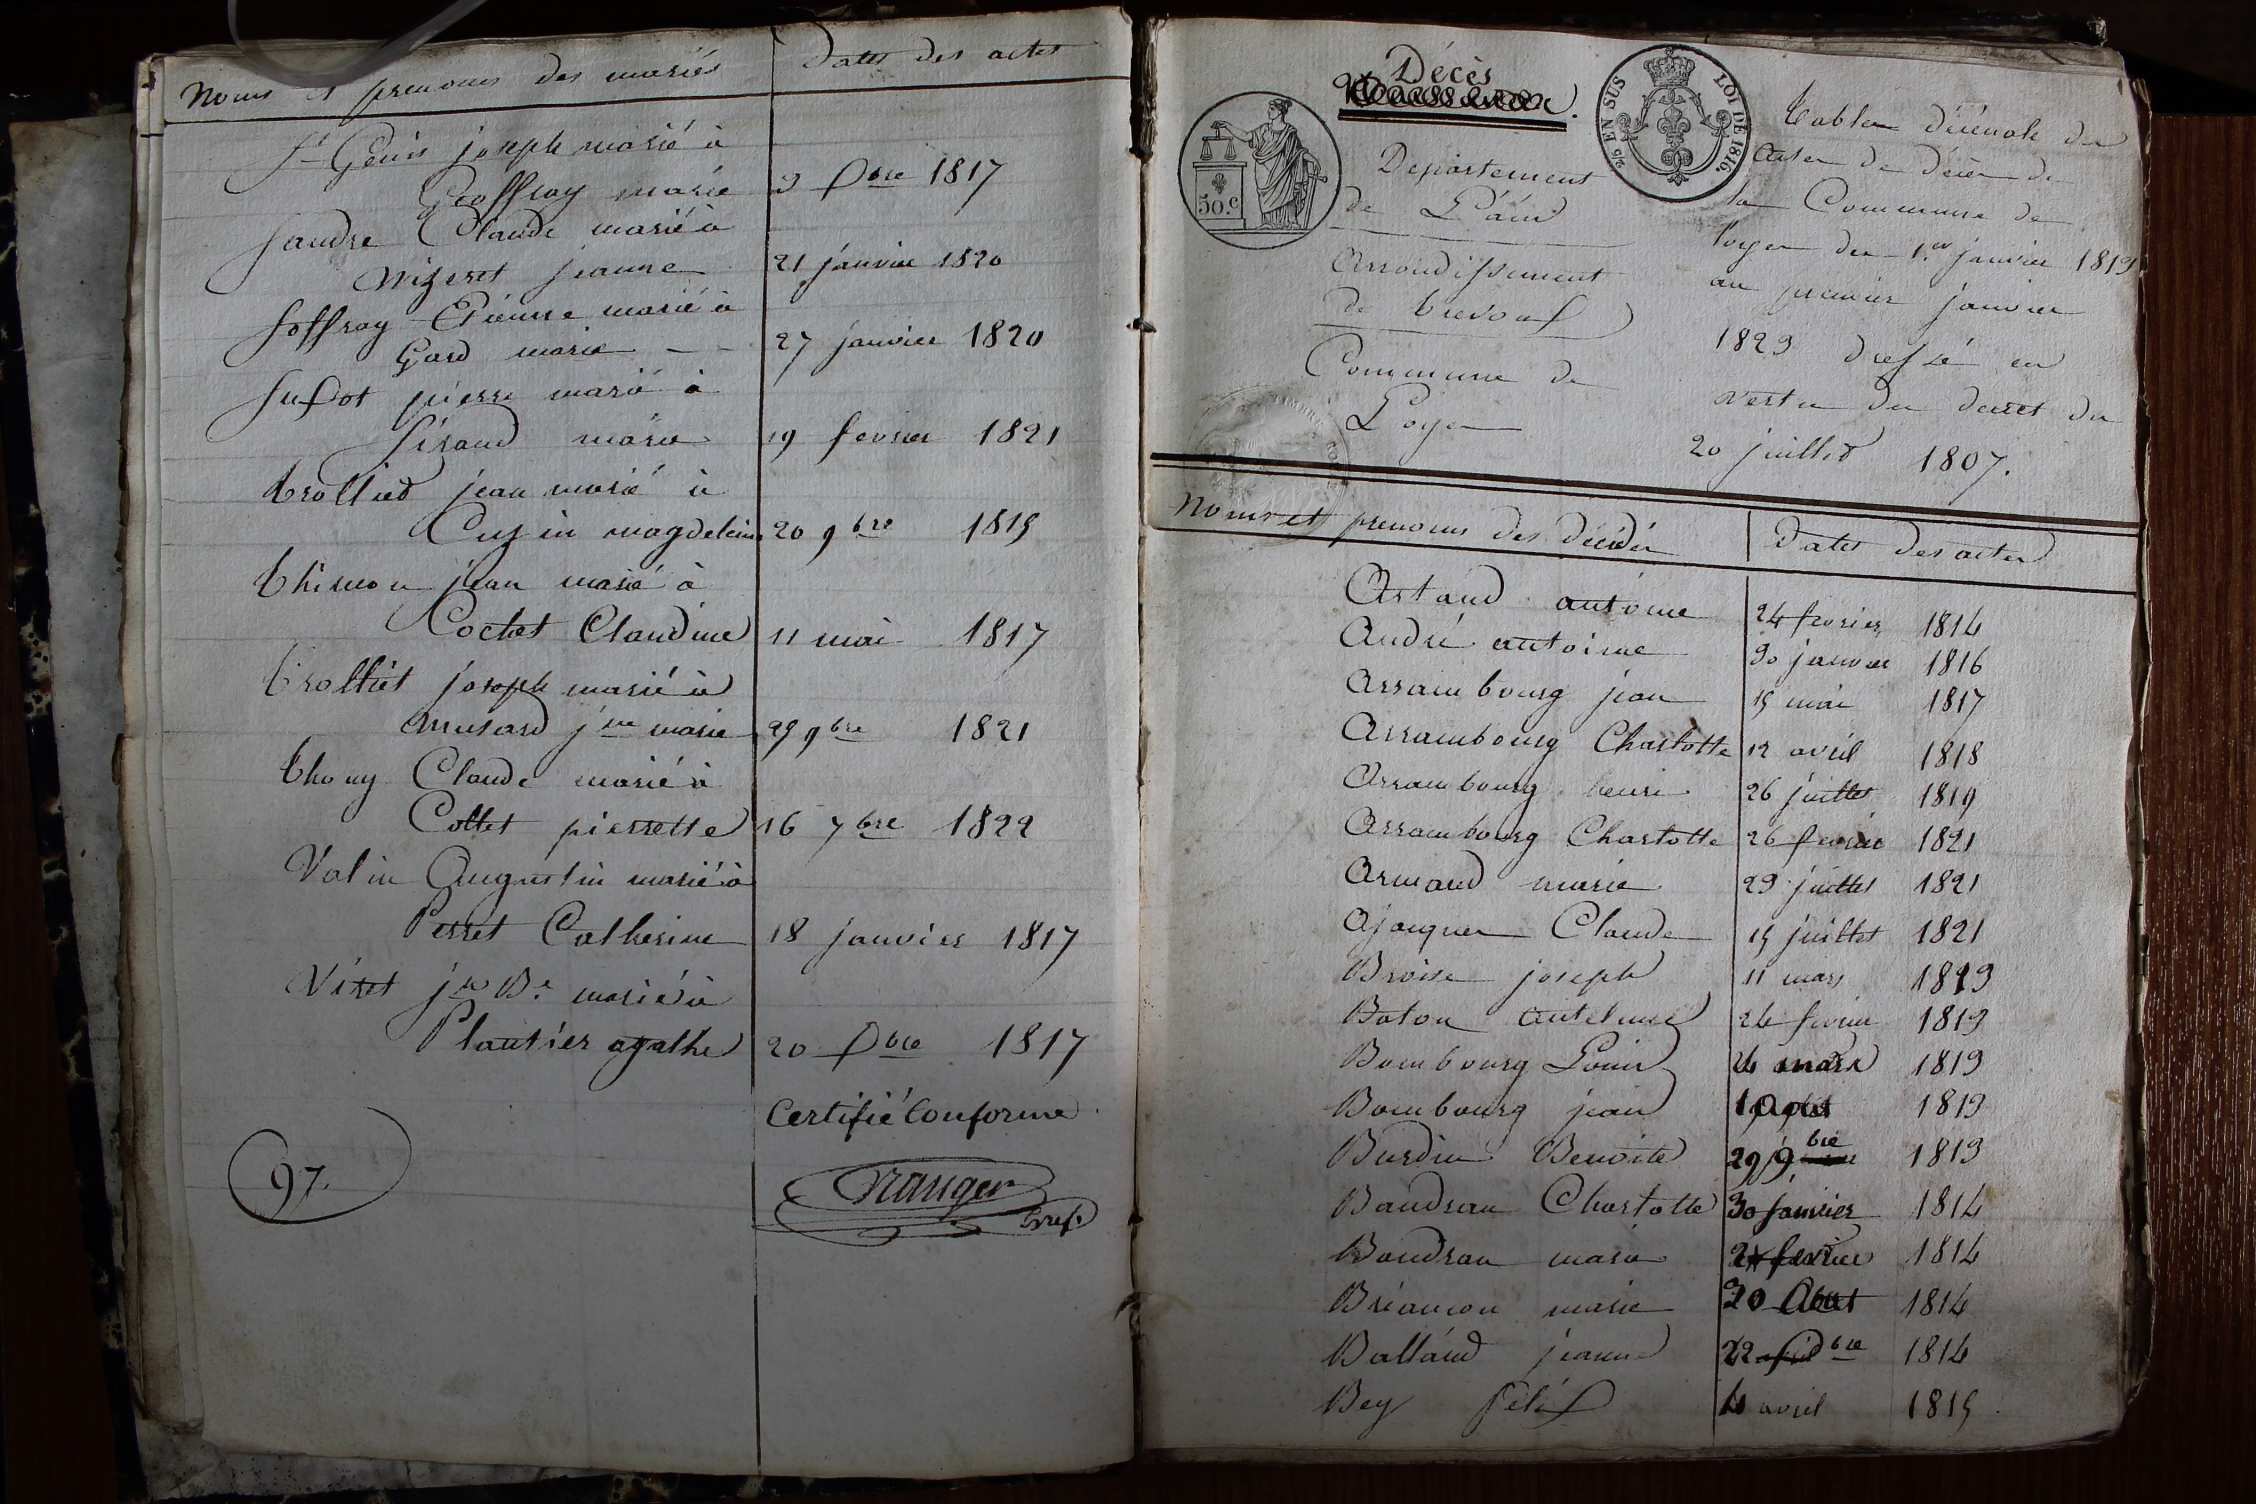 Noms et prenoms des mariés
Dates des actes
St Genis joseph marié à
Geoffray marie
3 Xbre 1817
Sandre Claude marié à
Mizeret jeanne
21 janvier 1820
Soffray Etienne marié à
Gard marie
27 janvier 1820
pierre marié à
Siraud marie
19 fevrier 1821
trolliet jean marié à
Cuzin magdeleine
20 9bre 1815
jean marié à
Cochet Claudine
11 mai 1817
trolliet joseph marié à
musard jne marie
25 9bre 1821
thony Claude marié à
Collet pierrette
16 7bre 1822
Valin Augustin marié à
Perret Catherine
18 janvier 1817
Viret jn Bte marié à
Plantier agathe
20 Xbre 1817
Certifié Conforme
97.
Greff.
Décès
Departement
de L'ain
Arrondissement
de trevoux
Commune de
Loyes
50.C
2/5 EN SUS
LOI DE 1816.
table décénale des
actes de décès de
la Commune de
loyes du 1.er janvier 1813
au premier janvier
1823 dressé en
vertu du decret du
20 juillet 1807.
Noms et prenoms des décédés
Dates des actes
Artaud antoine 24 fevrier 1814
André antoine 30 janvier 1816
Arrambourg jean 15 mai 1817
Arrambourg Charlotte 12 avril 1818
Arrambourg henri 26 juillet 1819
Arrambourg Charlotte 26 fevrier 1821
Armand marie 23 juillet 1821
Ajacques Claude 15 juillet 1821
Broise joseph 11 mars 1813
Baton antelme 24 fevrier 1813
Bombourg Louis mars 1813
Bombourg jean 1813
Burdin Benoite 29 9bre 1813
Baudran Charlotte 30 janvier 1814
Baudran marie fevrier 1814
Briancon marie Aout 1814
Balland jeanne 22 bre 1814
Bey avril 1815